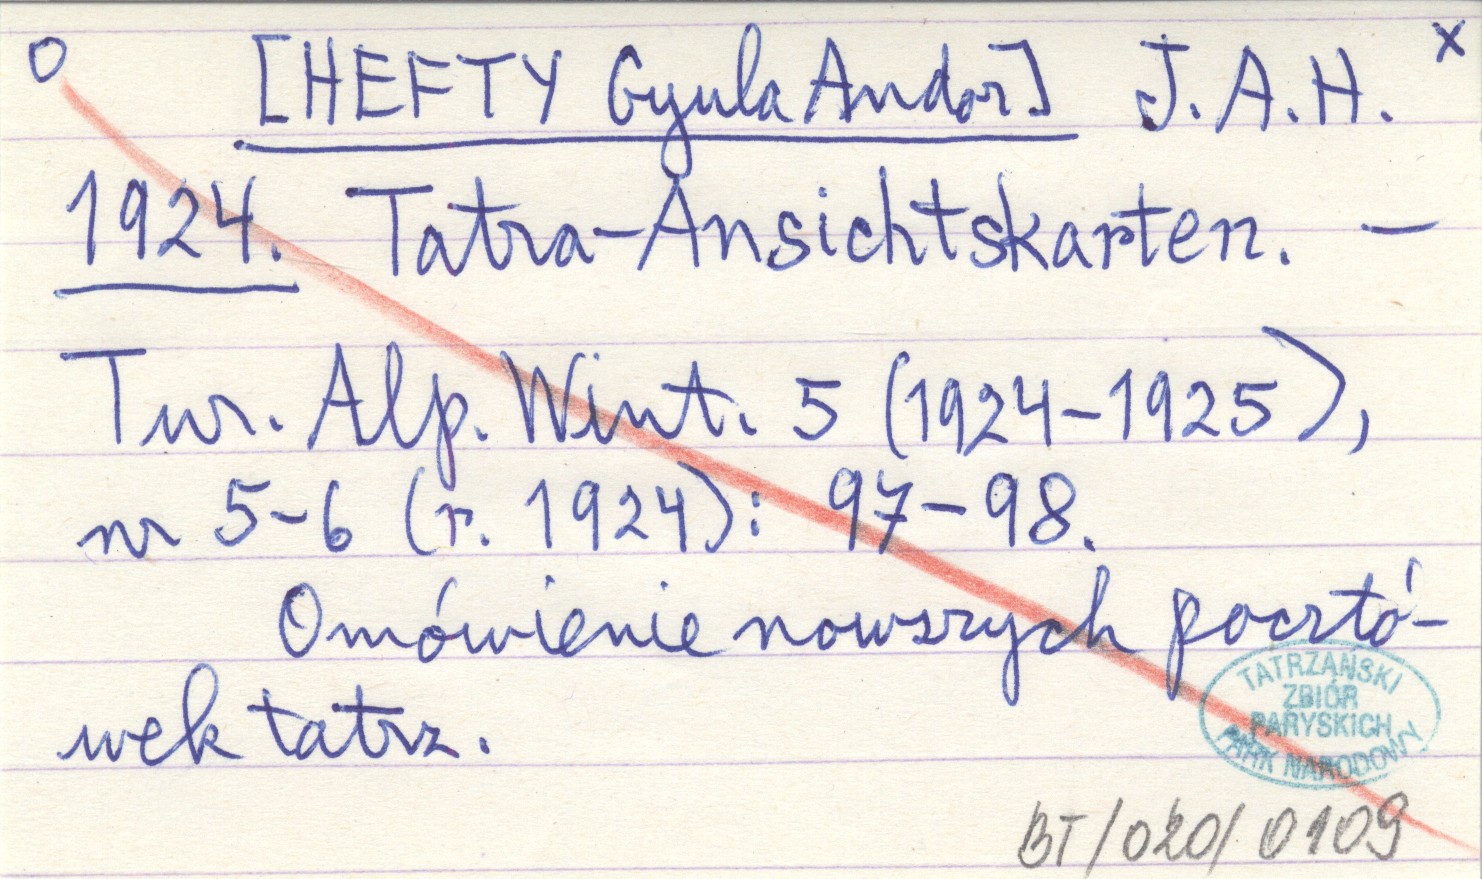 O [HEFTY Gyula Andor] J.A.H. x
1924. Tatra-Ansichtskarten. —
Tur. Alp. Wint. 5 (1924-1925),
nr 5-6 (r. 1924): 97-98.
Omówienie nowszych pocztó-
wek tatrz.
TATRZAŃSKI
ZBIÓR
PARYSKICH
PARK NARODOWY
BT/020/0109